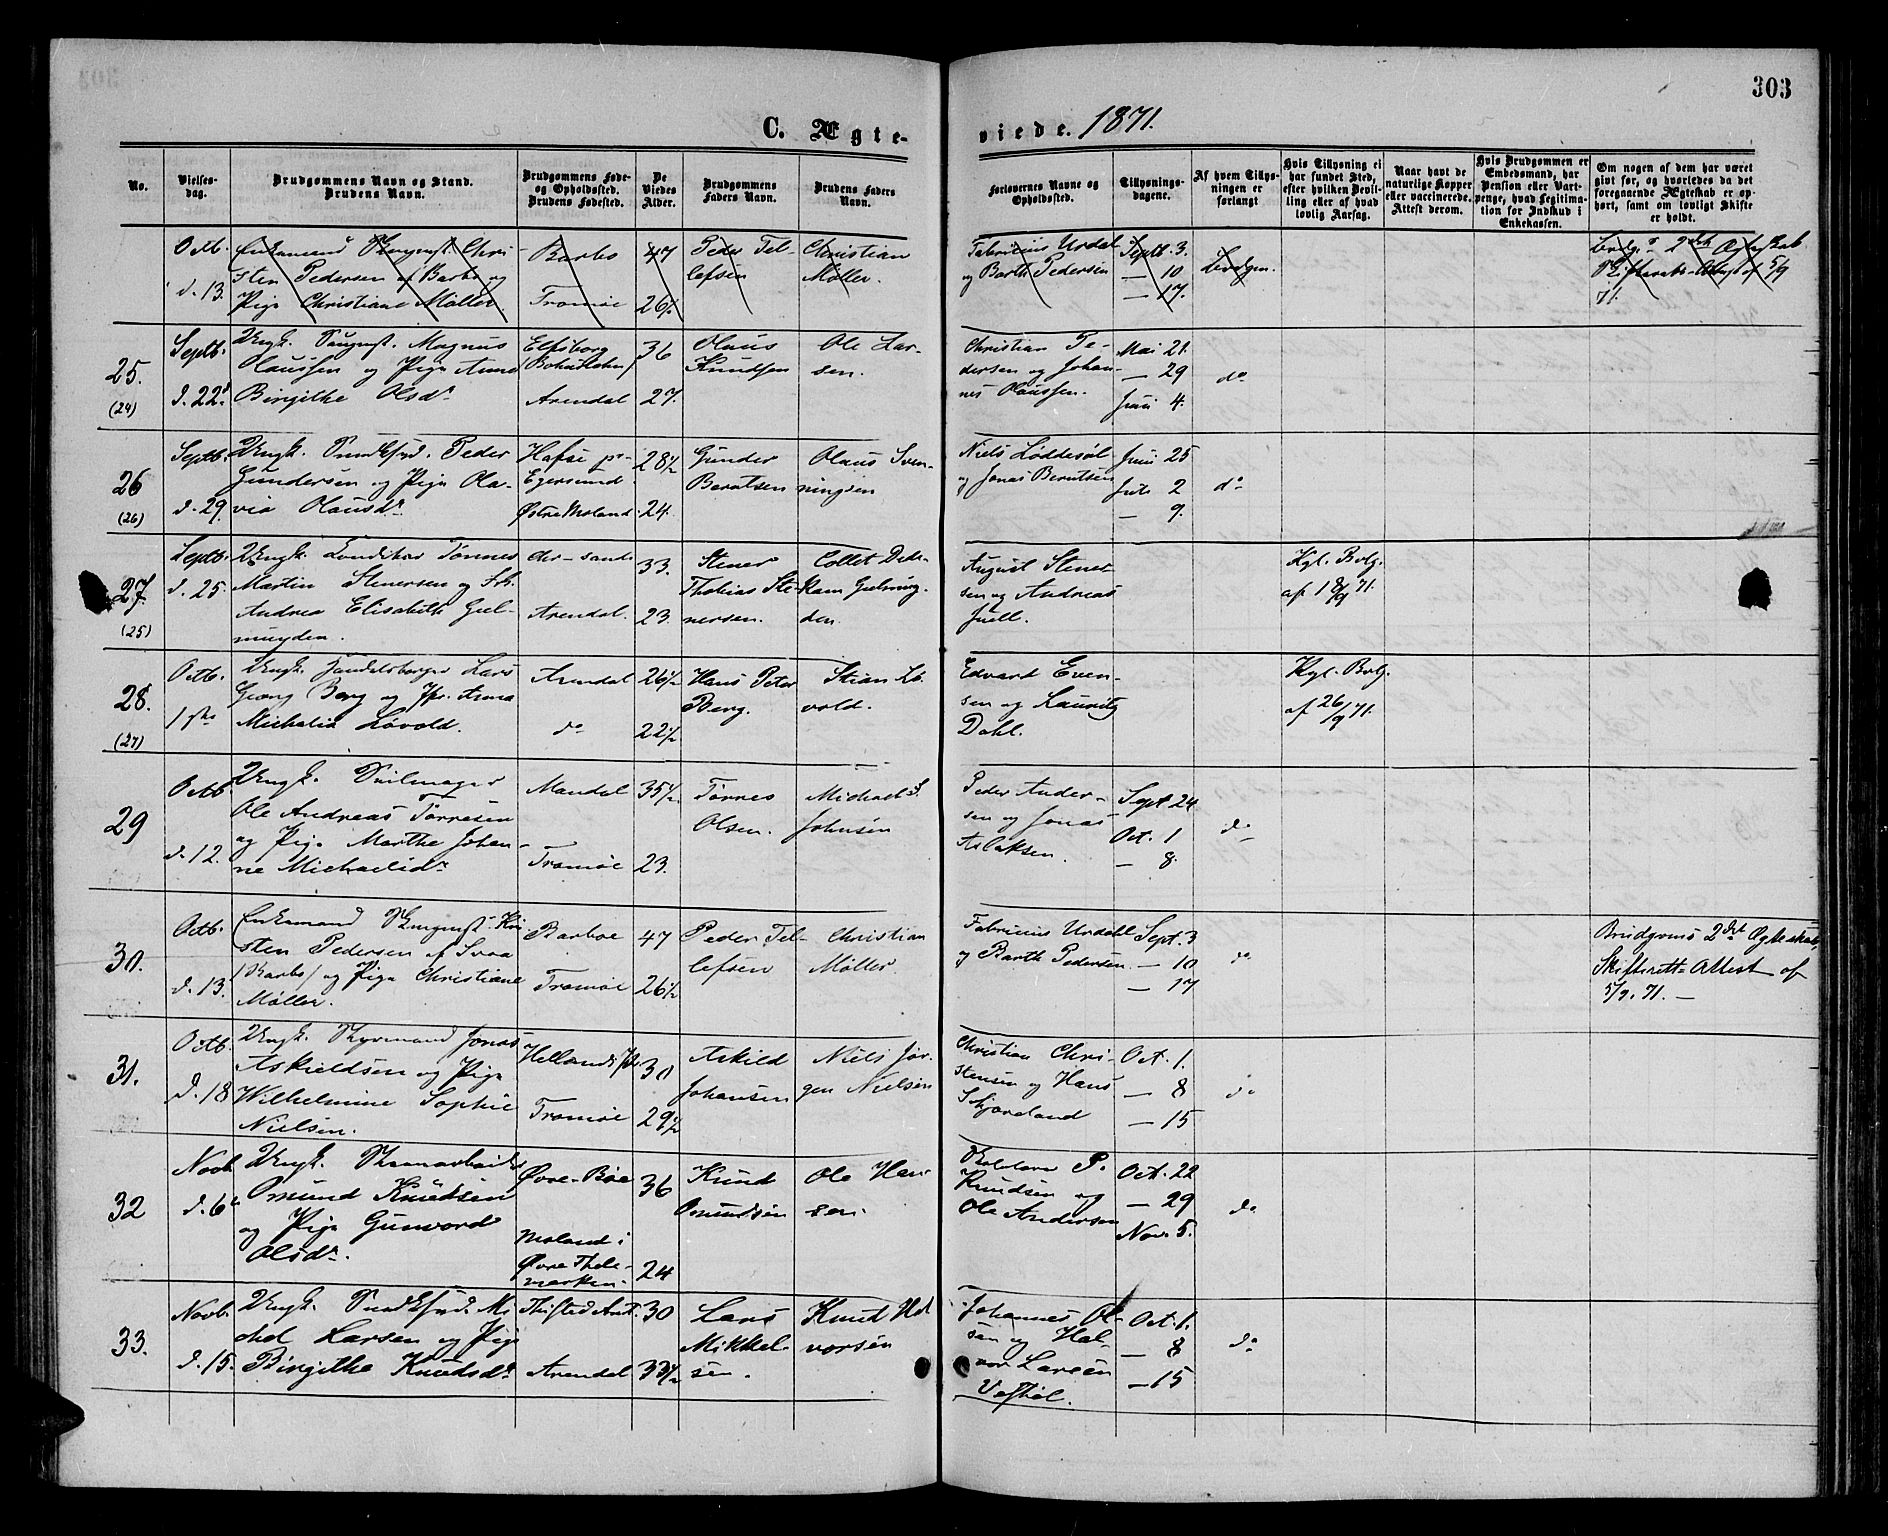 303
C. Ægte-
viede. 1871.
No.
Vielses-
dag.
Brudgommens Navn og Stand.
Brudens Navn.
Brudgommens Føde-
og Opholdssted.
Brudens Fødested.
De
Viedes
Alder.
Brudgommens
Faders Navn.
Brudens Faders
Navn.
Forlovernes Navne og
Opholdssted.
Tillysnings-
dagene.
Af hvem Tillys-
ningen er
forlangt
Hvis Tillysning ei
har fundet Sted,
efter hvilken Bevil-
ling eller af hvad
lovlig Aarsag.
Naar havt de
naturlige Kopper
eller vaccinerede.
Attest derom.
Hvis Brudgommen er
Embedsmand, har
Pension eller Vart-
penge, hvad Legitima-
tion for Indskud i
Enkekassen.
Om nogen af dem har været
gift før, og hvorledes da det
foregaaende Ægteskab er op-
hørt, samt om lovligt Skifte
er holdt.
Octb.
d. 13.
Enkemand Chri-
sten Pedersen af Barbo og
Pige Christiane Møller
Barbo
Tromøe
47
26½
Peder Tel-
lefsen
Christian
Møller.
Fabricius Urdal
og Barth Pedersen
Septb. 3.
— 10
— 17.
Brdgm.
5/9
71.
25.
(24)
Septb.
d. 22.
Ungk. Magnus
Olaussen og Pige Anne
Birgithe Olsdr.
Elfsborg
/Bohuslehn/
Arendal
36
27.
Olaus
Knudsen
Ole Lar-
sen.
Christian Pe-
dersen og Johan-
nes Olaussen.
Mai 21.
— 29
Juni 4.
do
26
(26)
Septb.
d. 29.
Ungk. Peder
Gundersen og Pige Ola-
via Olausdr.
Egersund
Østre Moland
28½
24.
Gunder
Berntsen
Olaus Sven-
ningsen
Niels Løddesøl
og Jonas Berntsen
Juni 25
Juli 2
— 9.
do
27.
(25)
Septb.
d. 25.
Ungk. Tønnes
Martin Stenersen og Frk.
Andrea Elisabeth Gul-
mungden.
Chr-sand
Arendal.
33.
23.
Stener
Thobias Ste-
nersen.
Collet Dede-
kam Gulmung-
den.
August Stener-
sen og Andreas
Juell.
Kgl. Bvlg.
af 18/9 71.
28.
(27)
Octb.
1ste
Ungk. Handelsborger Lars
Georg Berg og Jfr. Anna
Michalia Løvold.
Arendal
do
26½
22½
Hans Peter
Berg.
Stian Lø-
vold.
Edvard Even-
sen og Lauritz
Dahl.
Kgl. Bvlg.
af 26/9 71.
29
Octb
d. 12.
Ungk. Seilmager
Ole Andreas Tørresen
og Pige Marthe Johan-
ne Michaelsdr.
Mandal
Tromøe
35½
23.
Tørres
Olsen.
Michael S.
Johnsen
Peder Ander-
sen og Jonas
Aslaksen.
Sept. 24
Oct. 1
— 8.
do
30.
Octb.
d. 13.
Enkemand Kri-
sten Pedersen af Svaa
/Barbo/ og Pige Christiane
Møller.
Barboe
Tromøe
47
26½
Peder Tel-
lefsen
Christian
Møller
Fabricius Urdahl
og Barth Pedersen.
Sept. 3
— 10
— 17
do
Brudgoms 2det Ægteskab,
Skifterette Attest af
5/9. 71. —
31.
Octb.
d. 18
Ungk. Styrmand Jonas
Askieldsen og Pige
Wilhelmine Sophie
Nielsen.
Tromøe
30
29½
Askild
Johansen
Niels Jør-
gen Nielsen
Christian Chri-
stensen og Hans
Skjoreland
Oct. 1.
— 8
— 15
do
32
Novb
d. 6
Ungk.
Omund Knudsen
og Pige Gunvord
Olsdr.
Øvre-Bøe
Moland i
Øvre Thele-
marken.
36
24
Knud
Omundsen
Ole Han-
sen.
Knudsen og
Ole Andersen
Oct. 22
— 29
Nov. 5.
do
33.
Novb.
d. 15.
Ungk. Mi-
chel Larsen og Pige
Birgithe Knudsdr.
Thisted Amt.
Arendal
30
33½
Lars
Mikkel-
sen.
Knud Hal-
vorsen
Johannes Ol-
sen og Hal-
vor Larsen
Vessøl.
Oct. 1.
— 8
— 15
do